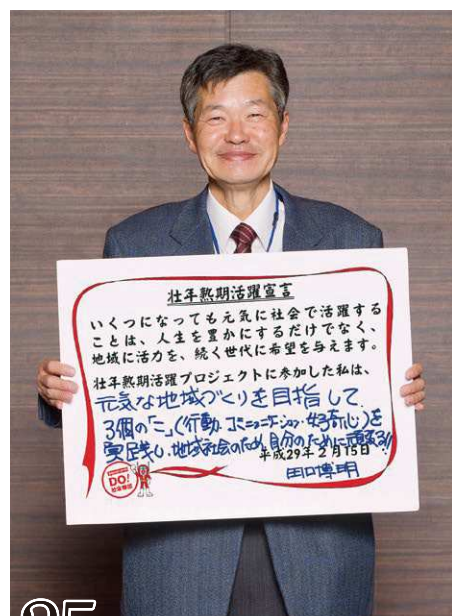 壮年熟期活躍宣言
いくつになっても元気に社会で活躍する
ことは、人生を豊かにするだけでなく、
地域に活力を、続く世代に希望を与えます。
壮年熟期活躍プロジェクトに参加した私は、
元気な地域づくりを目指して
3個の「こ」(行動・コミュニケーション・好奇心)を
実践し、地域社会のため、自分のために頑張る!!
平成29年2月15日
田口博明
DO!
25